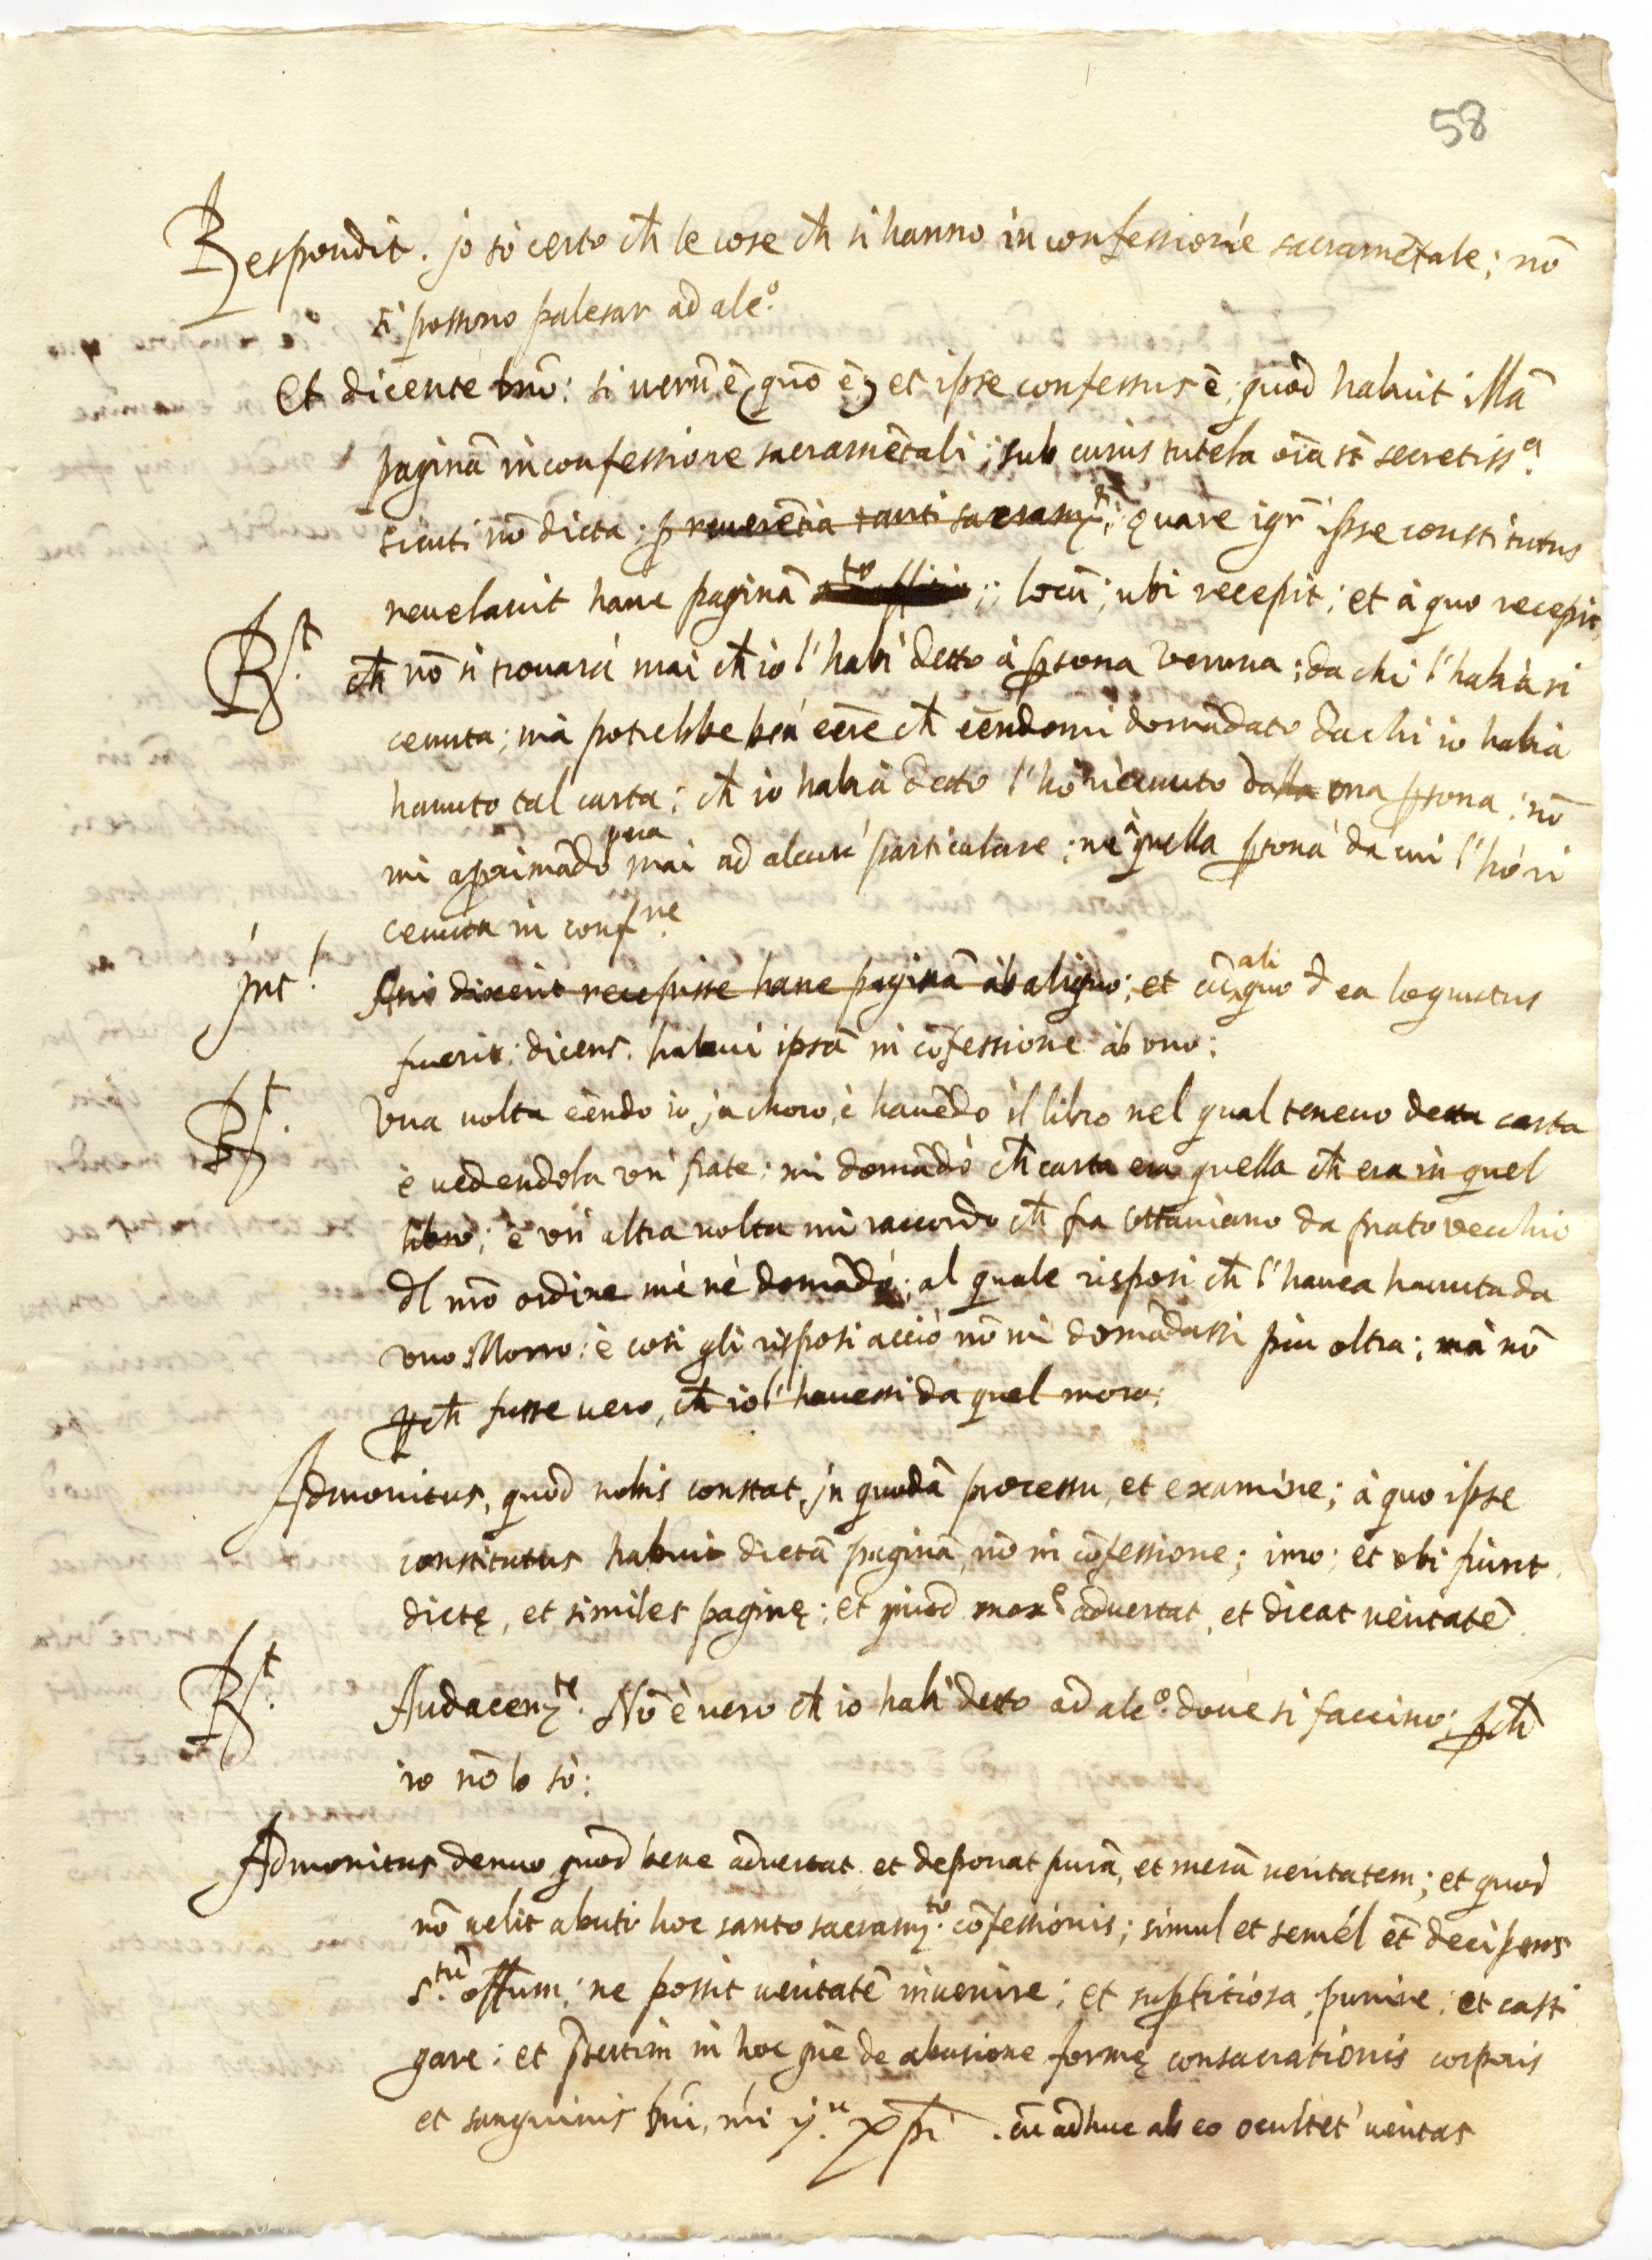 58
Respondit. Jo sò certo ch̃ le cose ch̃ si hanno in confessione sacramẽtale; nõ
si possono palesar ad alc.º
Et dicente dnõ: si verũ ẽ, quõ ẽ, et ipse confessus ẽ; quod habuit illã
paginã in confessione sacramẽtali; sub cuius tutela oĩa st̃ secretiss.ª
sicuti nõ dicta; p reverẽtia tanti sacram.ti; quare igr̃ ipse constitutus
revelavit hanc paginã locũ; ubi recepit; et à quo recepit,
R.t ch̃ nõ si trovarà mai ch̃ io l'habi detto à psona veruna; da chi l'habia ri
ceuuta; mà potrebbe ben eẽre ch̃ eẽndomi domãdato da chi io habia
hauuto tal carta; ch̃ io habia detto l'hò riceuuto da una psona; nõ
mi aprimãdo pera mai ad alcun particulare; ne quella psona da cui l'hò ri
ceuuta in conf.ne
Int.t An dixerit recepisse hanc paginã ab aliquo; et cũ aliquo d̃ ea loquutus
fuerit; dicens. habui ipsã in cõfessione ab uno:
R.t Una volta eẽndo io in choro, è havẽdo il libro nel qual tenevo detta carta
è vedendola un frate; mi domãdò ch̃ carta era quella ch̃ era in quel
libro; è un altra volta mi raccordo ch̃ fra Ottaviano da prato vecchio
dl nr̃o ordine me nè domãdò; al quale risposi ch̃ l'havea hauuta da
uno Morro: è così gli risposi acciò nõ mi domãdassi piu oltra; mà nõ
pch̃ fusse vero, ch̃ io l'havessi da quel moro:
Admonitus, quod nobis constat, in quodã processu, et examine; à quo ipse
constitutus habuit dictã paginã, nõ in cõfessione; imo; et ubi fiunt
dictę, et similes paginę; et quod max.e advertat, et dicat veritatẽ.
R.t Audacem.te. Nõ è vero ch̃ io habi detto ad alc.º dove si faccino; pch̃
io nõ lo sò:
Admonitus denuo quod bene advertat, et deponat purã, et merã veritatem; et quod
nõ velit abuti hoc santo sacram.to cõfessionis; simul et semel et̃ decipiens
S.tũ offum; ne possit veritatẽ invenire; et supstitiosa, punire; et casti
gare; et psertim in hoc gñe de abusione formę consacrationis corporis
et sanguinis dñi, nr̃i y.u xp̃i. cũ adhuc ab eo ocultet' veritas